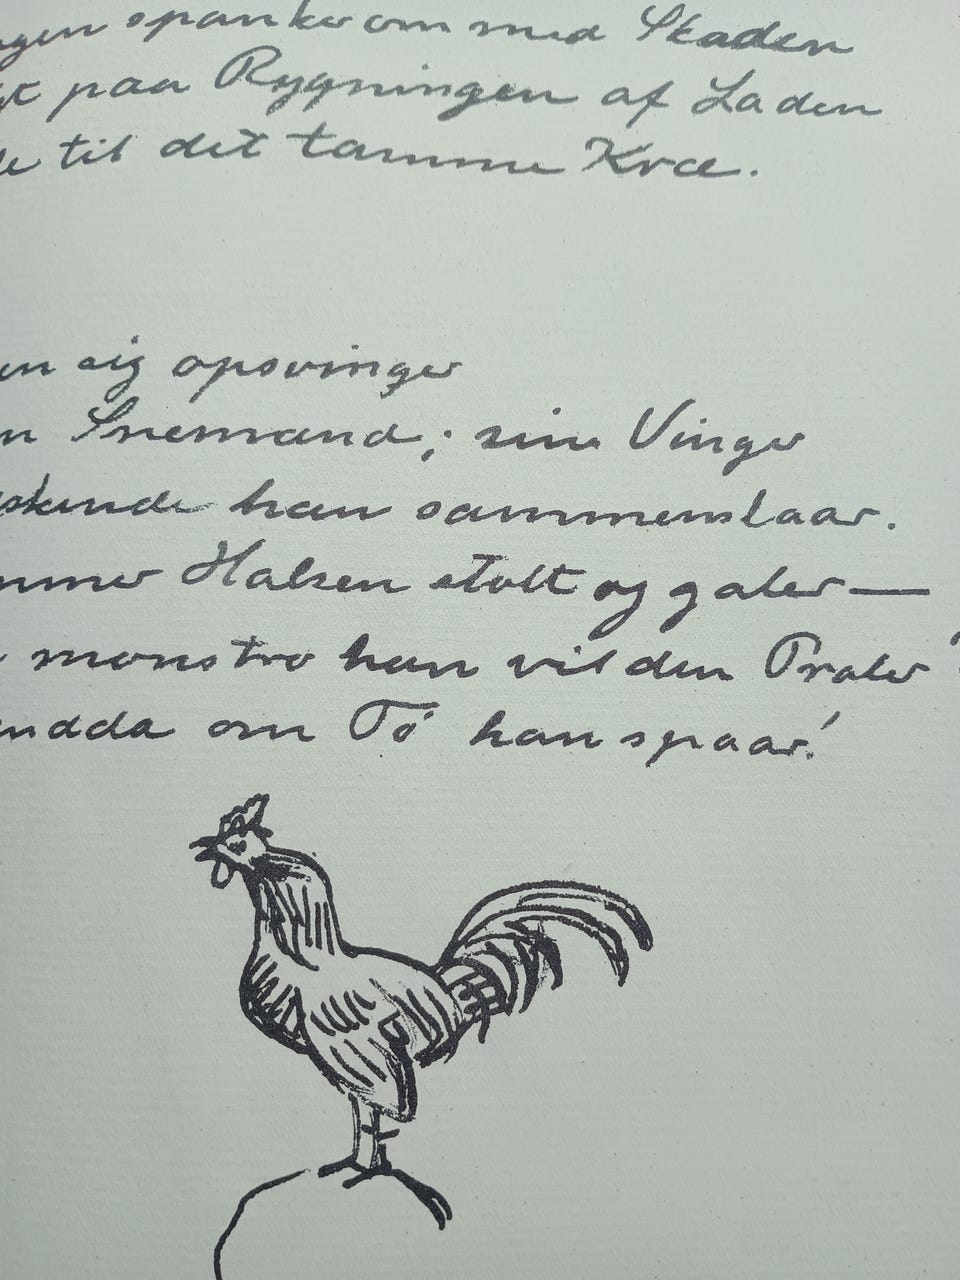 spanker om med Skaden
paa Rygningen af Laden
til det tamme Kræ.
sig opsvinger
Snemand; sine Vinger
han sammenslaar.
Halsen stolt og galer—
monstro han vil den Praler
endda om Tö han spaar!